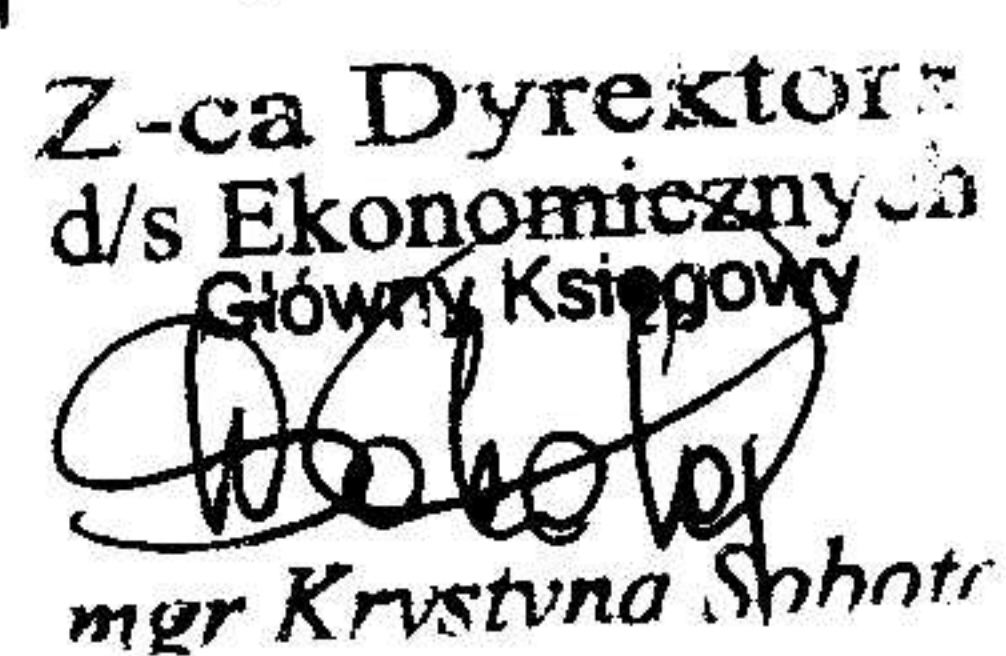 Z-ca Dyrektora
d/s Ekonomicznych
Główny Księgowy
mgr Krystyna Sobota